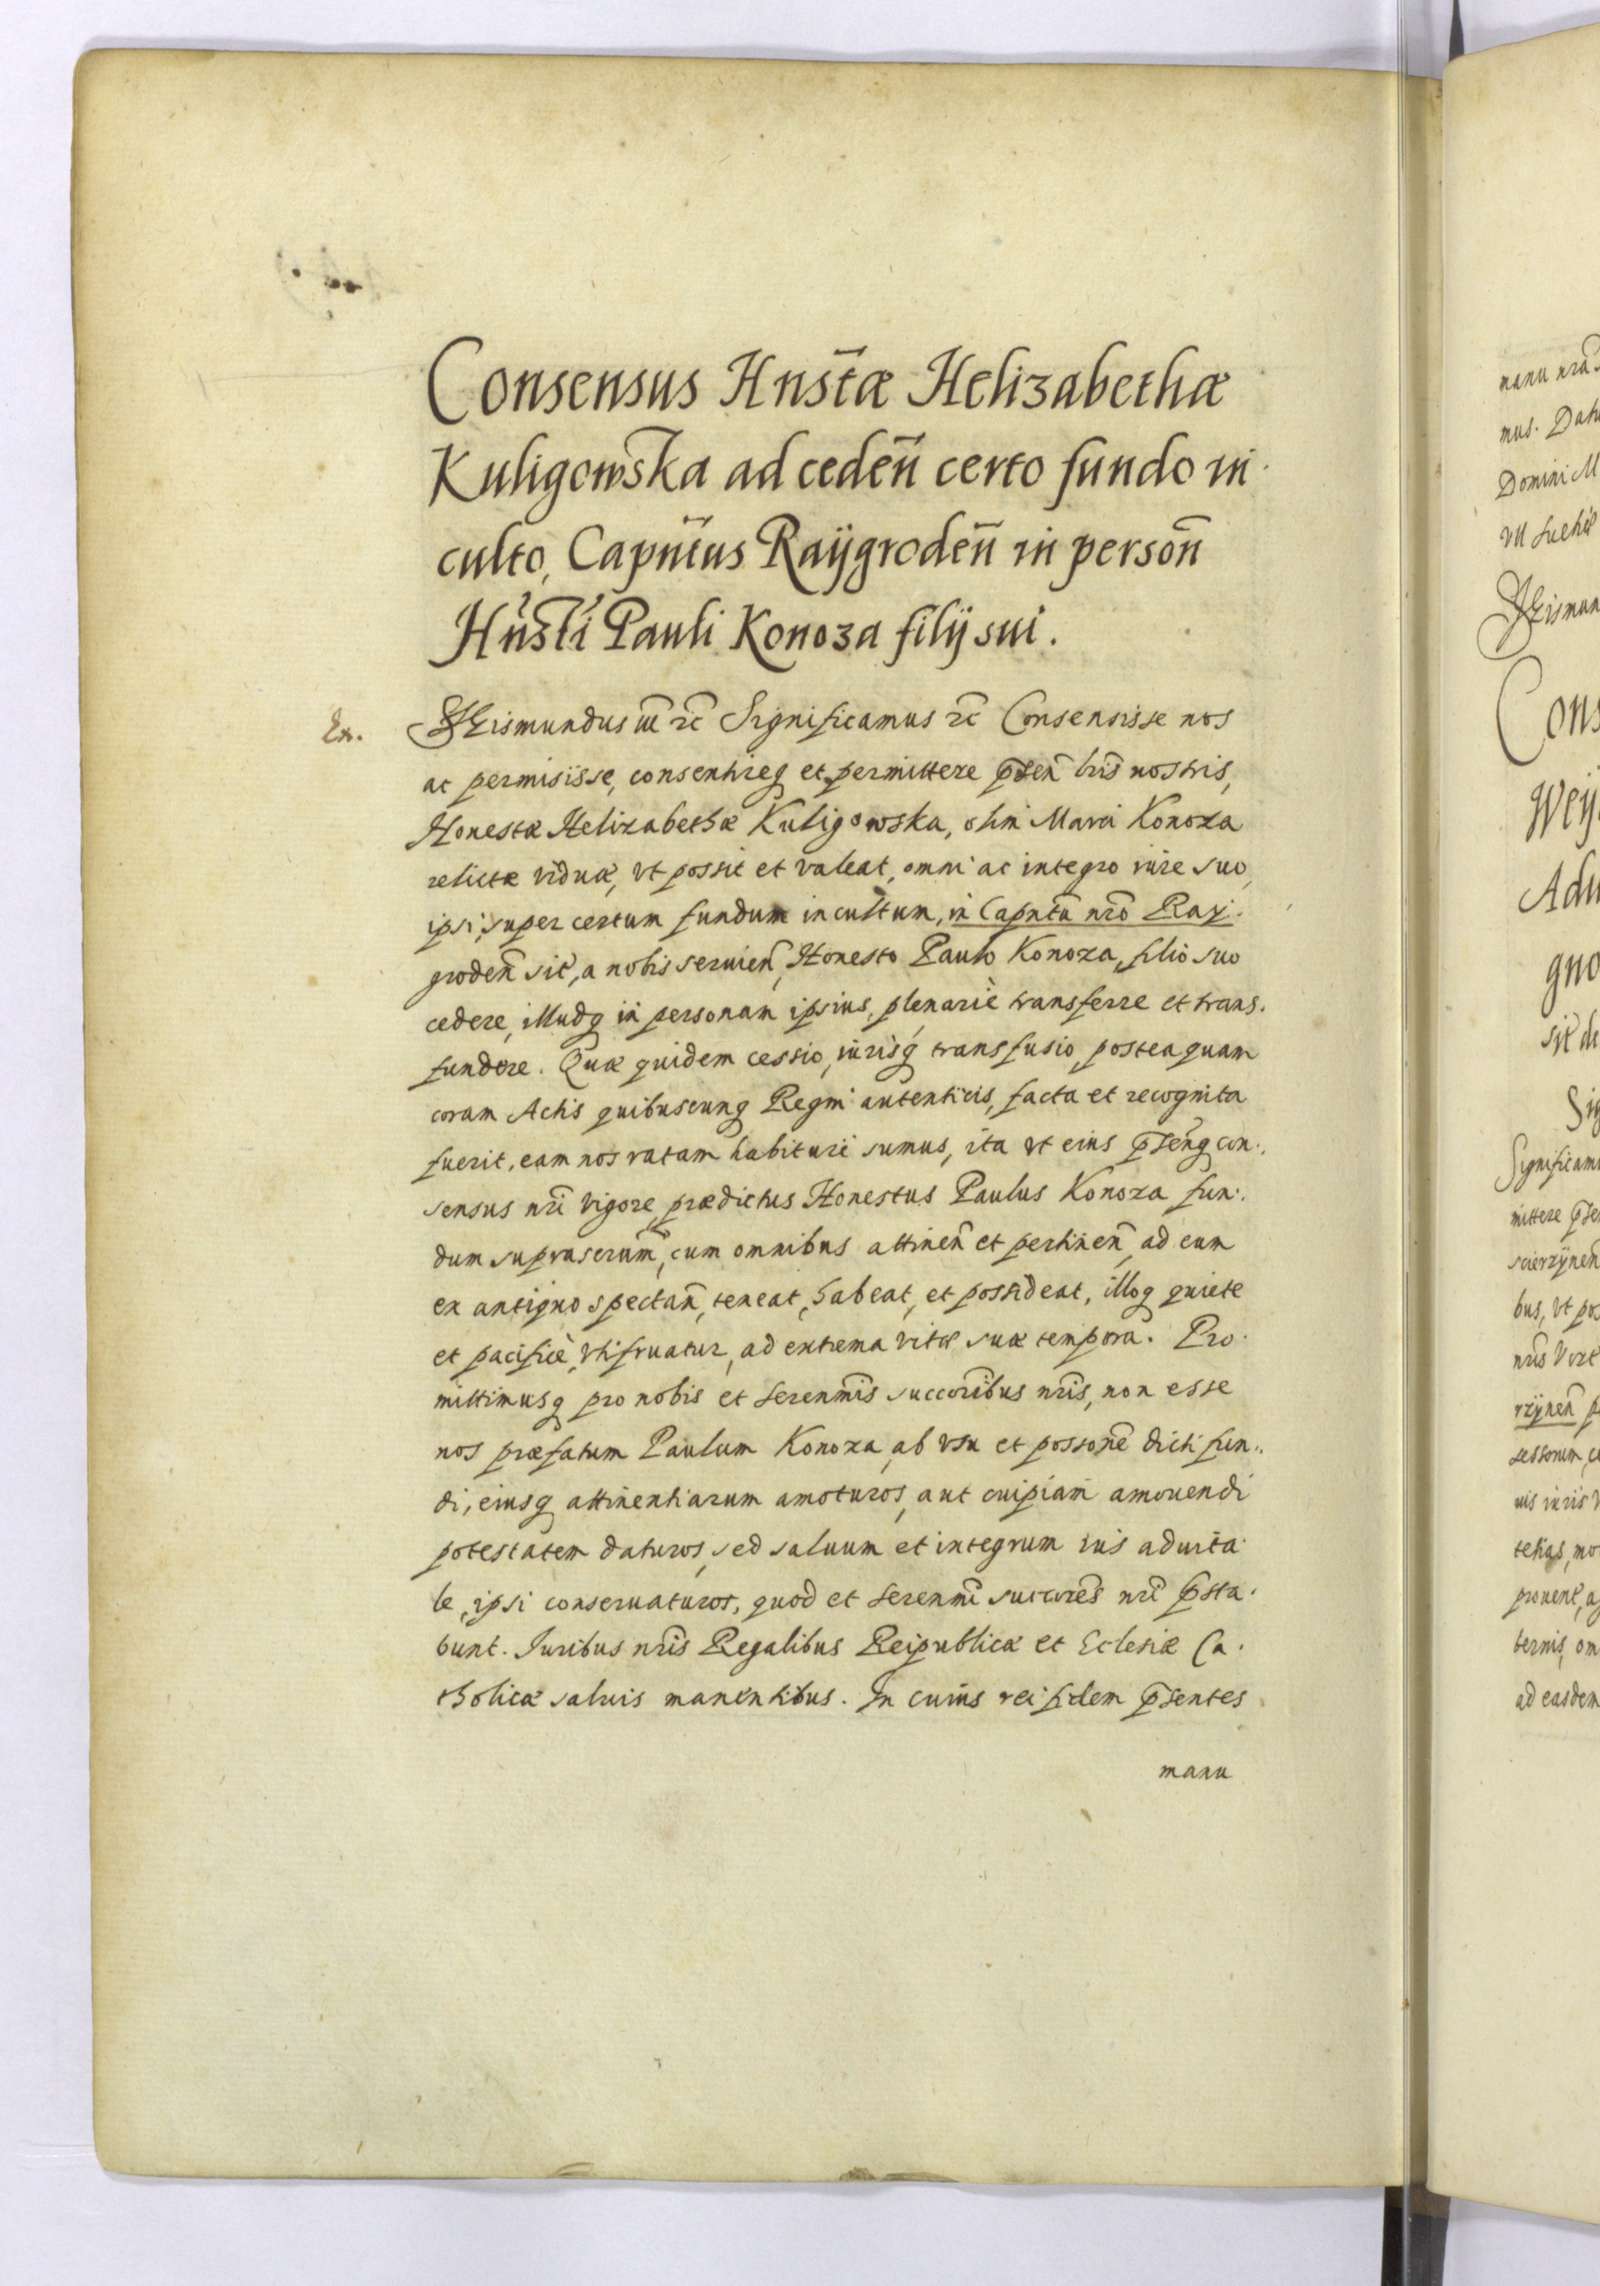 Consensus Hns̄tæ Helizabethæ
Kuligows̄ka ad cedēn certo fundo in
culto, Capn̄tus Raÿgrodēn in persōn
Hn̄sti Pauli Konoza filÿ sui.
Ex. Sigismundus III ꝛc Significamus ꝛc Consensisse nos
ac permisisse, consentireq; et permittere p̄sen̄ lr̄is nostris,
Honestæ Helizabethæ Kuligowska, olim Marci Konoza
relictæ viduæ, vt possit et valeat, omni ac integro iure suo,
ipsi, super certum fundum incultum, in Capn̄tu nr̄o Raÿ.
groden̄ sit̄, a nobis seruien̄, Honesto Paulo Konoza, filio suo
cedere, illudq; in personam ipsius, plenariè transferre et trans.
fundere. Quæ quidem cessio, iurisq; transfusio, postea quam
coram Actis quibuscunq; Regni autenticis, facta et recognita
fuerit, eam nos ratam habituri sumus, ita vt eius p̄senq; con.
sensus nr̄i vigore, prædictus Honestus Paulus Konoza fun.
dum suprascrūm, cum omnibus attinen̄ et pertinen̄, ad eum
ex antiquo spectan̄, teneat, habeat, et possideat, illoq; quiete
et pacificè, vtifruatur, ad extrema vitæ suæ tempora. Pro.
mittimusq; pro nobis et Serenm̄is succōribus nr̄is, non esse
nos præfatum Paulum Konoza, ab vsu et possōne dicti fun.
di, eiusq; attinentiarum amoturos, aut cuipiam amouendi
potestatem daturos, sed saluum et integrum ius aduita
le, ipsi conseruaturos, quod et Serenm̄i succōres nr̄i p̄sta.
bunt. Iuribus nr̄is Regalibus Reipublicæ et Eclesiæ Ca.
tholicæ saluis manentibus. In cuius rei fidem p̄sentes
manu
manu nr̄a
mus. Datu
Domini M
VII
Sigismun
Cons
Weÿ
Adu
gno
sit̄ de
Sig
Significamu
mittere p̄se
bus, vt pos
nr̄is
rzÿnen̄ p
sessorum, c
uis iuris v
prouent, a
ternis, om
ad easdem